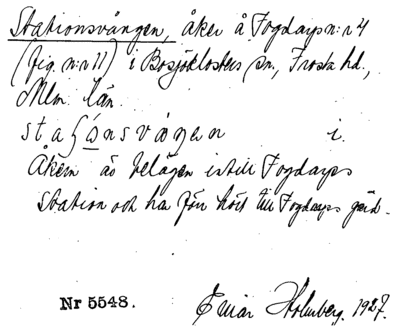 Stationsvången, åker å Fogdarps n:r 4
(fig. n:r 11) i Bosjöklosters sn., Frosta hd.,
Mlm. län.
staʃǿnsvaŋen i.
Åkern är belägen intill Fogdarps
station och har förr hört till Fogdarps gård.
Nr 5548. Einar Holmberg. 1927.